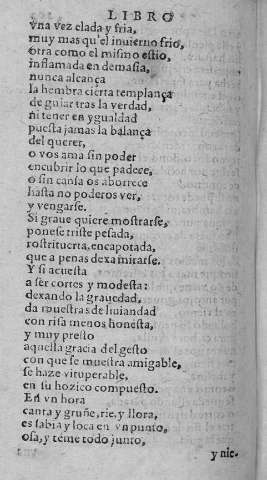 LIBRO
vna vez elada y fria,
muy mas qu'el inuierno frio,
otra como el mismo estio,
inflamada en demasia,
nunca alcança
la hembra cierta templança
de guiar tras la verdad,
ni tener en ygualdad
puesta jamas la balança
del querer,
o vos ama sin poder
encubrir lo que padece,
o sin causa os aborrece
hasta no poderos ver,
y vengarse.
Si graue quiere mostrarse,
ponese triste pesada,
rostrituerta, encapotada,
que a penas dexa mirarse.
Y si acuesta
a ser cortes y modesta:
dexando la grauedad,
da muestras de liuiandad
con risa menos honesta,
y muy presto
aquella gracia del gesto
con que se muestra amigable,
se haze vituperable,
en su hozico compuesto.
En vn hora
canta y gruñe, rie, y llora,
es sabia y loca en vn punto,
osa, y teme todo junto,
y nie-